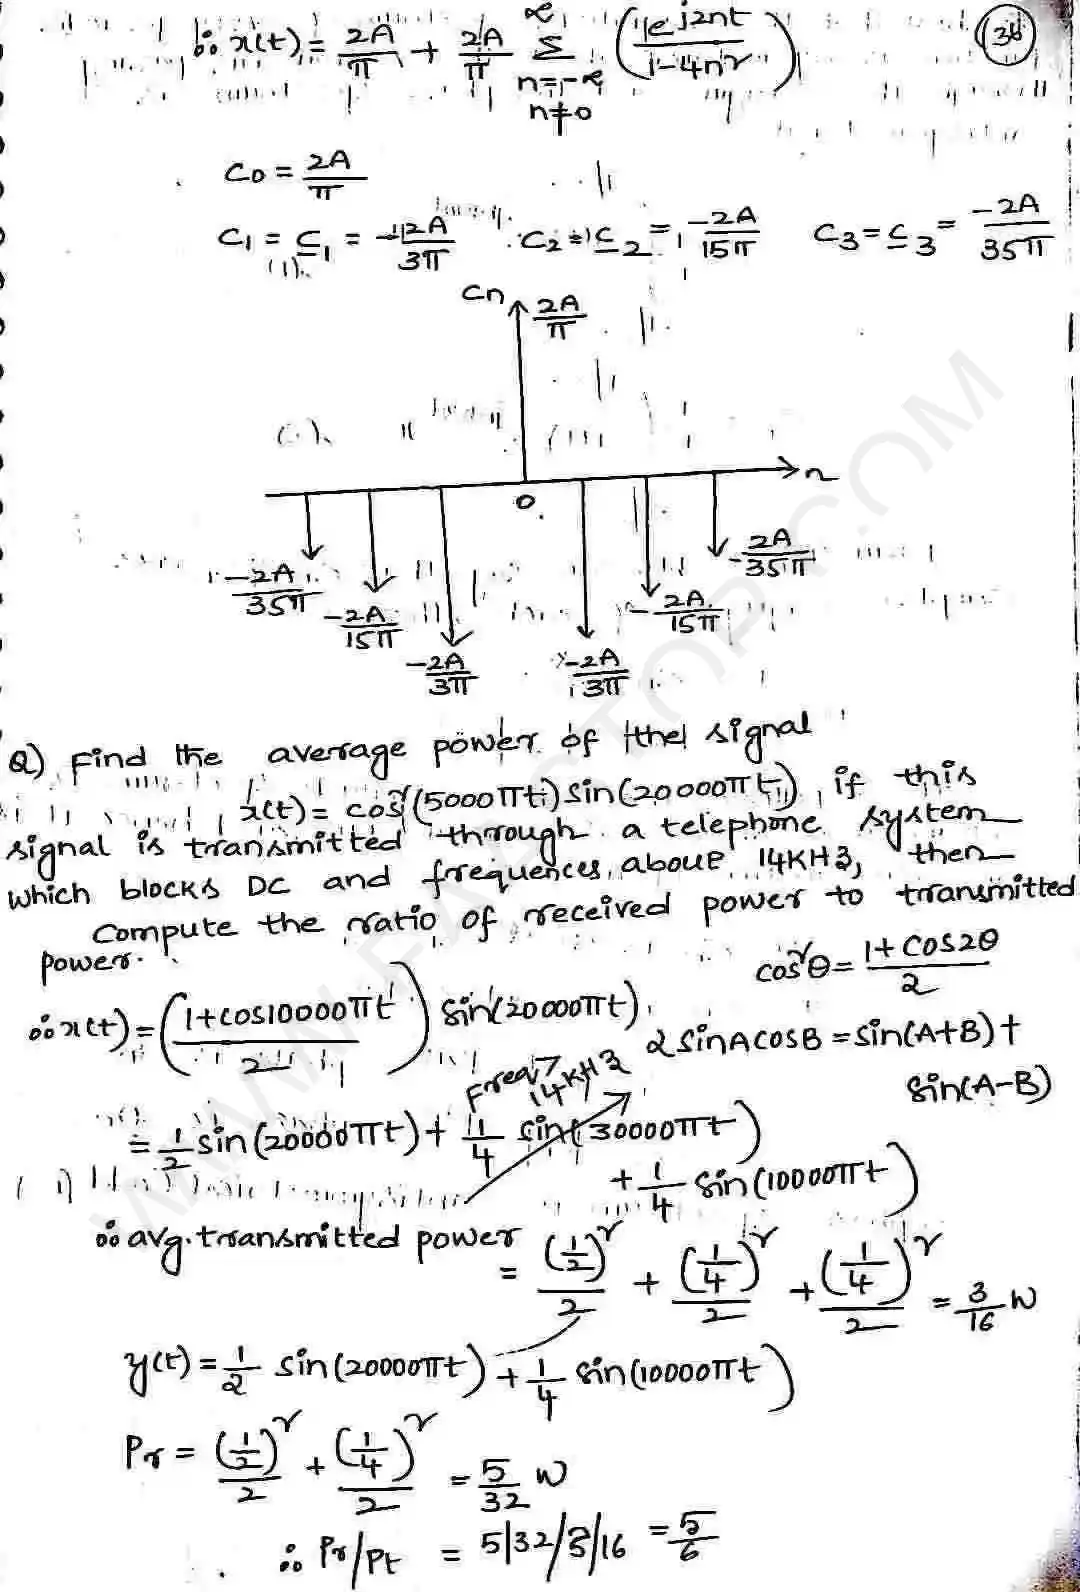 ∴ x(t) = 2A/π + 2A/π Σ_{n=-∞, n≠0}^{∞} (1e^{j2nt}/(1-4n²))
36
C0 = 2A/π
C1 = C_1 = -2A/3π C2 = C_2 = -2A/15π C3 = C_3 = -2A/35π
Cn
2A/π
n
0
-2A/35π
-2A/15π
-2A/3π
-2A/3π
-2A/15π
-2A/35π
Q) Find the average power of the signal
x(t) = cos²(5000πt) sin(20000πt), if this
signal is transmitted through a telephone system
which blocks DC and frequencies above 14KHz, then
Compute the ratio of received power to transmitted
power.
cos²θ = (1+cos2θ)/2
∴ x(t) = ((1+cos10000πt)/2) sin(20000πt)
2 sinA cosB = sin(A+B) + sin(A-B)
Freq> 14KHz
= 1/2 sin(20000πt) + 1/4 sin(30000πt)
+ 1/4 sin(10000πt)
∴ avg. transmitted power = (1/2)²/2 + (1/4)²/2 + (1/4)²/2 = 3/16 W
y(t) = 1/2 sin(20000πt) + 1/4 sin(10000πt)
Pr = (1/2)²/2 + (1/4)²/2 = 5/32 W
∴ Pr/Pt = 5/32/3/16 = 5/6